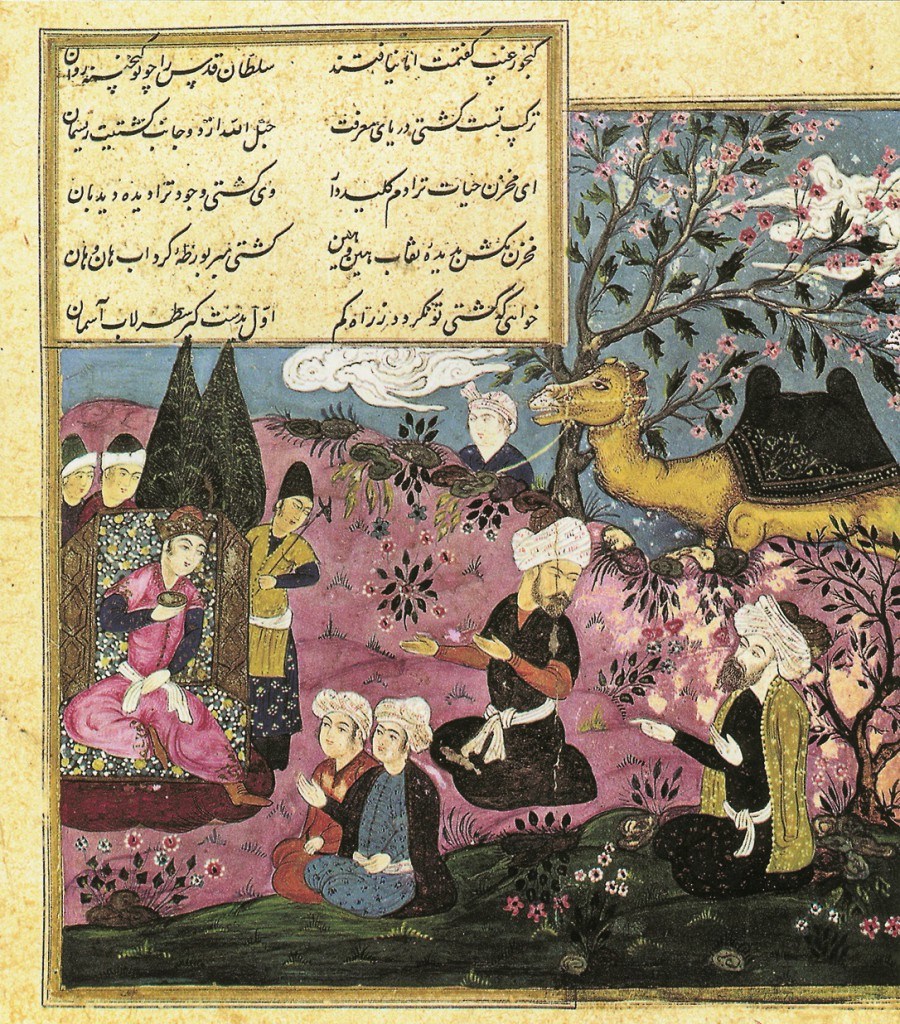 کنجور غیب کفتمت اما نیافتند سلطان قدس را چو تو کنجینه روان
ترکیب تست کشتی دریای معرفت حبل الله از دو جانب کشتیت ریسمان
ای مخزن حیات ترا دم وی کشتی وجود ترا دیده دیدبان
مخزن بدیدهٔ نقاب هین وهین کشتی مبر بورطهٔ کرداب هان وهان
خواهی که کشتی تو نکردد ز راه کم اول بدست کیر سطرلاب آسمان